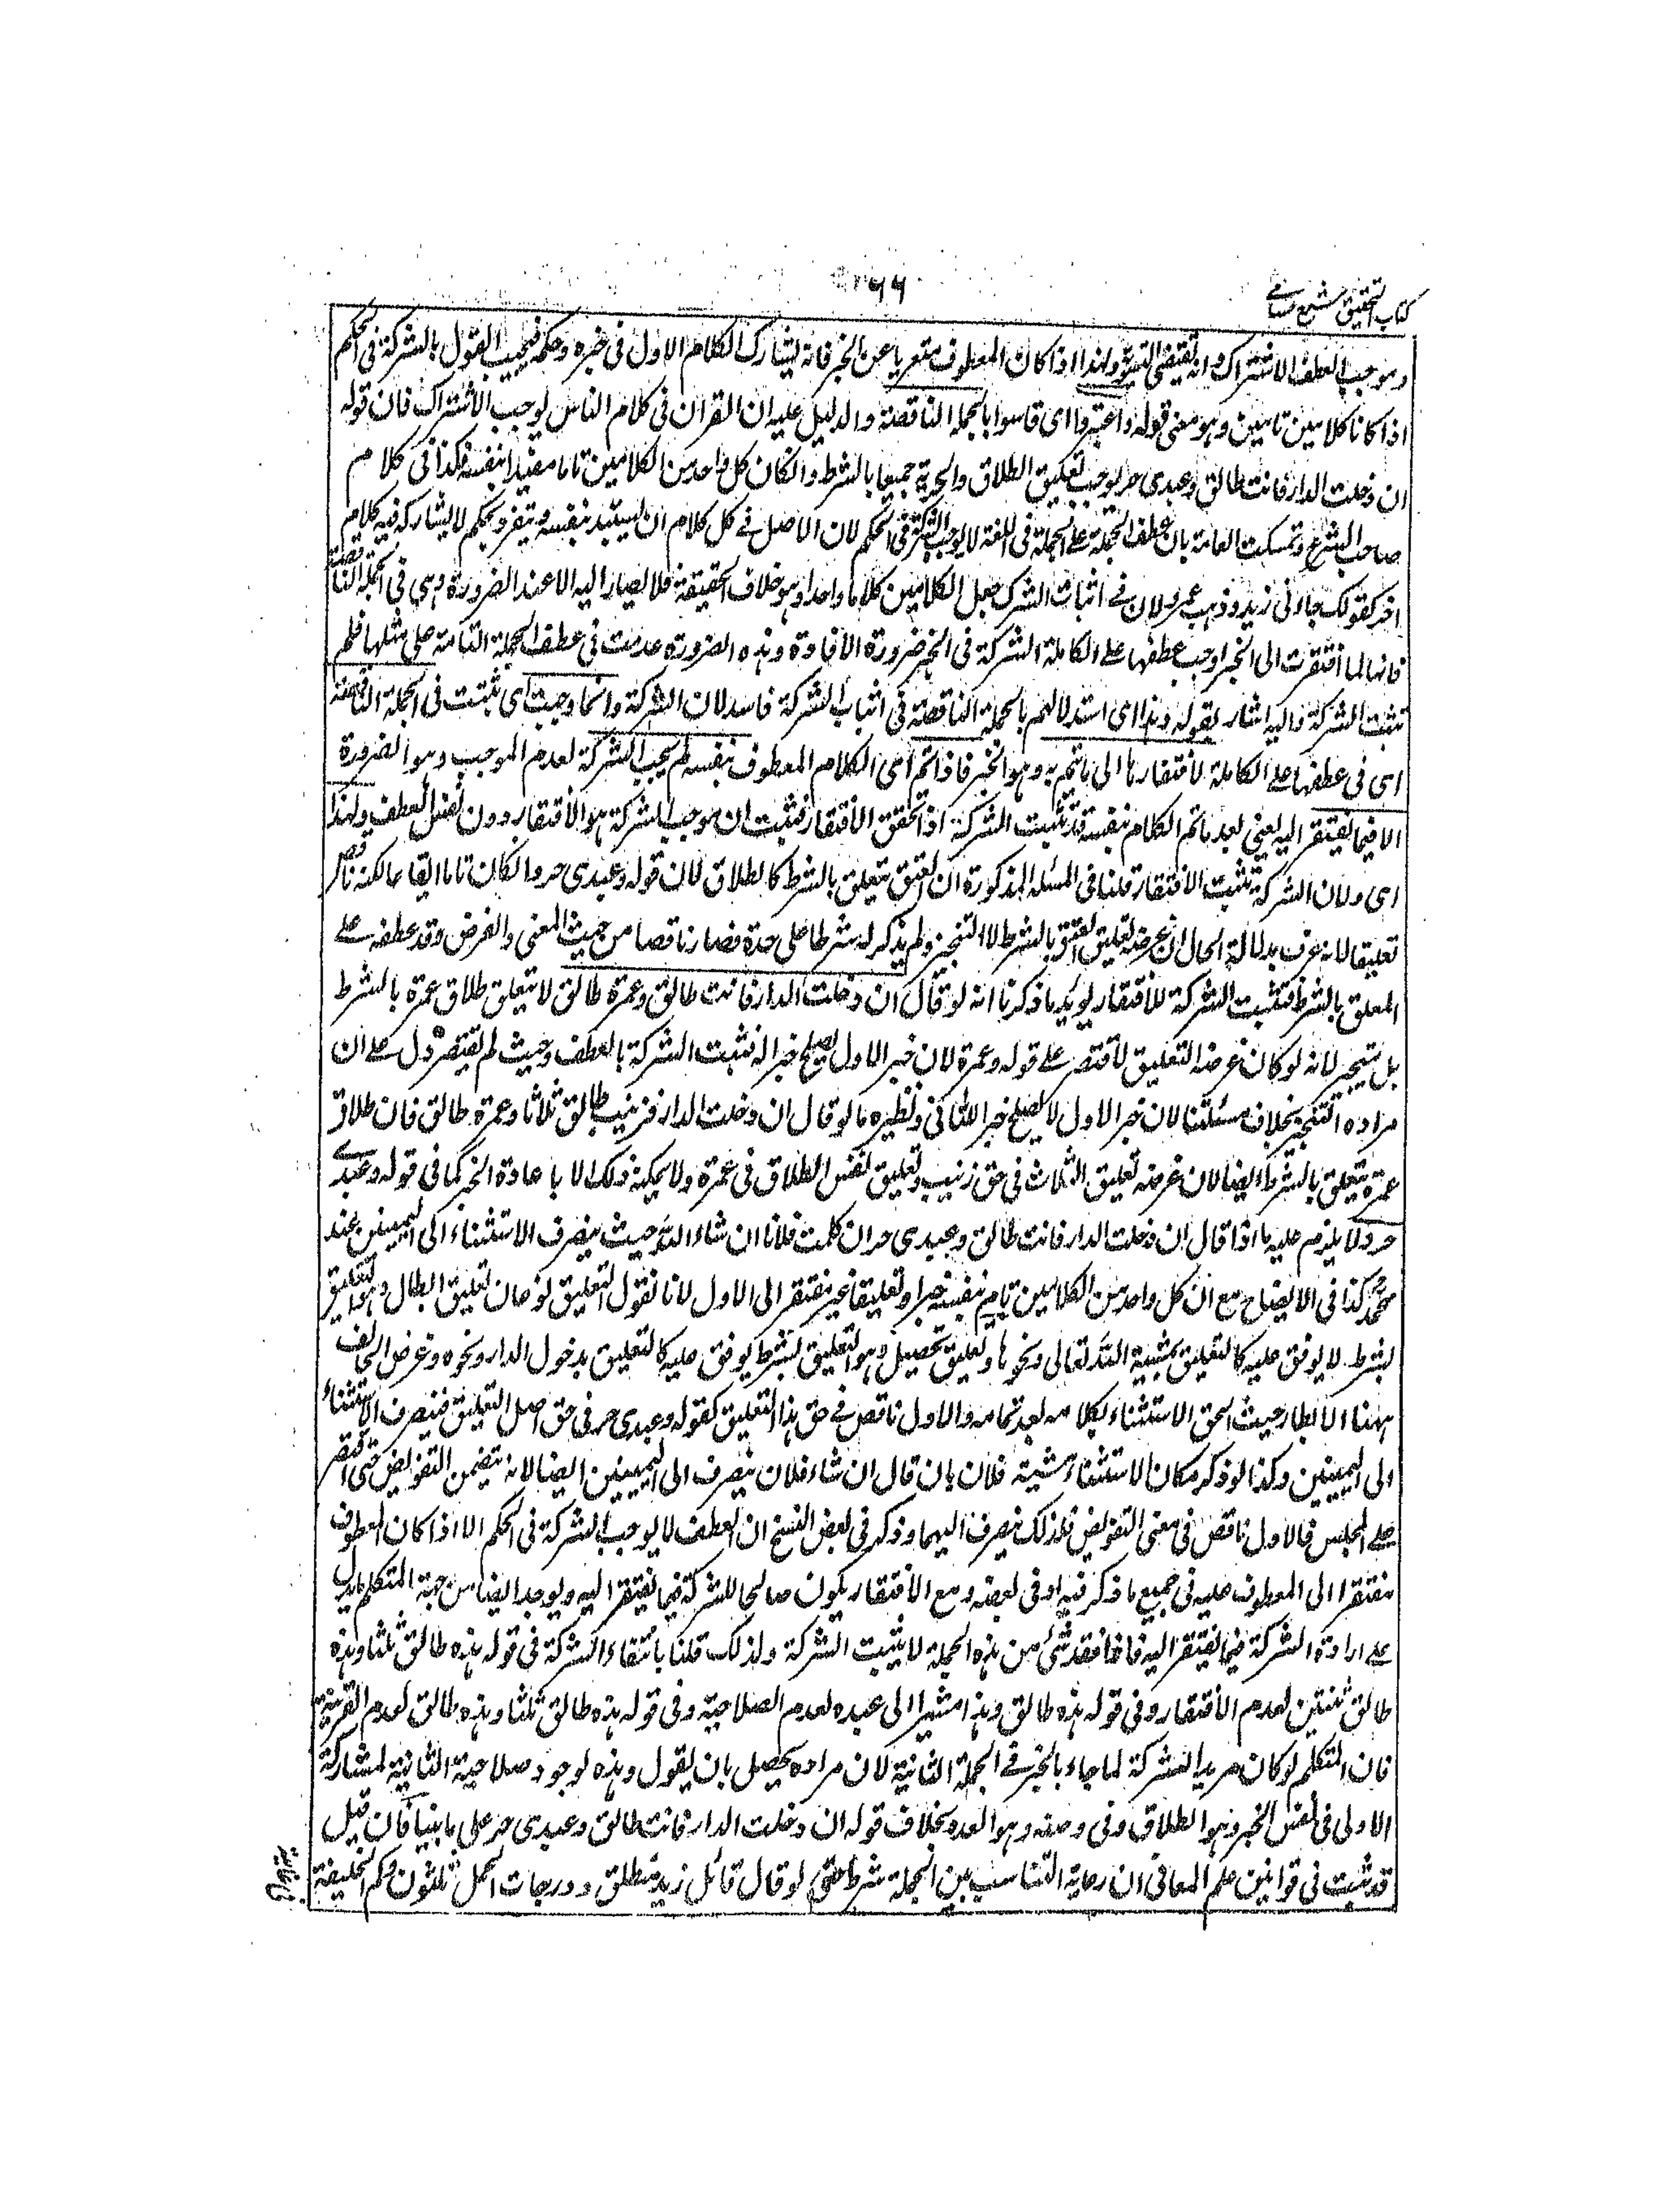 كتاب التحقيق شرح حسامي
٦٦
وموجب العطف الاشتراك وانه يقتضي التسوية ولهذا اذا كان المعطوف متعريا عن الخبر فانه يشارك الكلام الاول في خبره وحكمه فيجب القول بالشركة في الحكم
اذا كانا كلامين تامين وهو معنى قوله واعتبروا اى قاسوا بالجملة الناقصة والدليل عليه ان القران في كلام الناس يوجب الاشتراك فان قوله
ان دخلت الدار فانت طالق وعبدى حر يوجب تعليق الطلاق والحرية جميعا بالشرط وان كان كل واحد من الكلامين تاما مفيدا بنفسه فكذا في كلام
صاحب الشرع وتمسكت العامة بان عطف الجملة على الجملة في اللغة لا يوجب الشركة في الحكم لان الاصل في كل كلام ان يستبد بنفسه ويتفرد بحكم لا يشاركه فيه كلام
اخر كقولك جاءنى زيد وذهب عمرو لان في اثبات الشركة جعل الكلامين كلاما واحدا وهو خلاف الحقيقة فلا يصار اليه الا عند الضرورة وهي في الجملة الناقصة
فانها لما افتقرت الى الخبر اوجب عطفها على الكاملة الشركة في الخبر ضرورة الافادة وهذه الضرورة عدمت في عطف الجملة التامة على مثلها فلم
تثبت الشركة واليه اشار بقوله وهذا اى استدلالهم بالجملة الناقصة في اثبات الشركة فاسد لان الشركة وانما وجبت اى ثبتت في الجملة الناقصة
اى في عطفها على الكاملة لافتقارها الى ما تتم به وهو الخبر فاذا تم اى الكلام المعطوف بنفسه لم يجب الشركة لعدم الموجب وهو الضرورة
الا فيما يفتقر اليه يعني بعد ما تم الكلام بنفسه قد تثبت الشركة اذا تحقق الافتقار فثبت ان موجب الشركة هو الافتقار دون نفس العطف ولهذا
اى ولان الشركة تثبت الافتقار قلنا في المسئلة المذكورة ان العتق يتعلق بالشرط كالطلاق لان قوله وعبدى حر وان كان تاما ايقاعا لكنه ناقص
تعليقا لانه عرف بدلالة الحال ان غرضه تعليق العتق بالشرط لا التنجيز ولم يذكر له شرطا على حدة فصار ناقصا من حيث المعنى والغرض وقد عطفه على
المعلق بالشرط فتثبت الشركة للافتقار يؤيد ما ذكرنا انه لو قال ان دخلت الدار فانت طالق وعمرة طالق لا يتعلق طلاق عمرة بالشرط
بل يتنجز لانه لو كان غرضه التعليق لاقتصر على قوله وعمرة لان خبر الاول يصلح خبرا له فثبت الشركة بالعطف وحيث لم يقتصر دل على ان
مراده التنجيز بخلاف مسئلتنا لان خبر الاول لا يصلح خبرا للثانى ونظيره ما لو قال ان دخلت الدار فزينب طالق ثلاثا وعمرة طالق فان طلاق
عمرة يتعلق بالشرط ايضا لان غرضه تعليق الثلاث في حق زينب وتعليق نفس الطلاق في عمرة ولا يمكنه ذلك الا باعادة الخبر كما في قوله وعبدى
حر ولا يلزم عليه ما اذا قال ان دخلت الدار فانت طالق وعبدى حر ان كلمت فلانا ان شاء الله حيث ينصرف الاستثناء الى اليمينين عند
محمد كذا في الايضاح مع ان كل واحد من الكلامين تام بنفسه خبرا وتعليقا غير مفتقر الى الاول لانا نقول التعليق نوعان تعليق ابطال وهو التعليق
بشرط لا يوقف عليه كالتعليق بمشية الله تعالى ونحوها وتعليق تحصيل وهو التعليق بشرط يوقف عليه كالتعليق بدخول الدار ونحوه وغرض الحالف
ههنا الابطال حيث الحق الاستثناء بكلامه بعد تمامه والاول ناقص في حق هذا التعليق كقوله وعبدى حر في حق اصل التعليق فينصرف الاستثناء
الى اليمينين وكذا لو ذكر مكان الاستثناء مشية فلان بان قال ان شاء فلان ينصرف الى اليمينين ايضا لانه يتضمن التفويض حتى اقتصر
على المجلس فالاول ناقص في معنى التفويض فلذلك ينصرف اليهما وذكر في بعض النسخ ان العطف لا يوجب الشركة في الحكم الا اذا كان المعطوف
مفتقرا الى المعطوف عليه في جميع ما ذكر فيه او في بعضه ومع الافتقار يكون صالحا للشركة فيما يفتقر اليه ويوجد ايضا من جهة المتكلم ما يدل
على ارادة الشركة فيما يفتقر اليه فاذا فقد شئ من هذه الجملة لا يثبت الشركة ولذلك قلنا بانتفاء الشركة في قوله هذه طالق ثلثا وهذه
طالق ثنتين لعدم الافتقار وفى قوله هذه طالق وهذا مشيرا الى عبده لعدم الصلاحية وفى قوله هذه طالق ثلثا وهذه طالق لعدم القرينة
فان المتكلم لو كان مريدا الشركة لما جاء بالخبر في الجملة الثانية لان مراده يحصل بان يقول وهذه لوجود صلاحية الثانية لمشاركة
الاولى في نفس الخبر وهو الطلاق وفى وصفه وهو العدد بخلاف قوله ان دخلت الدار فانت طالق وعبدى حر على ما بينا فان قيل
قد ثبت في قوانين علم المعانى ان رعاية التناسب بين الجملة شرط حتى لو قال قائل زيد منطلق ودرجات الحمل ثلثون وكم الخليفة